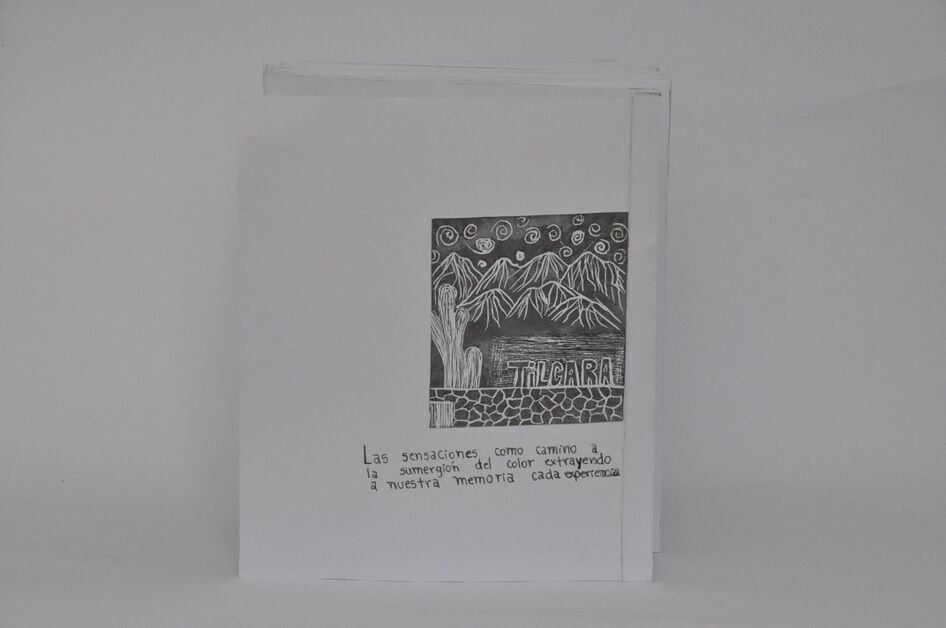 TILCARA
Las sensaciones como camino a
la sumergión del color extrayendo
a nuestra memoria cada experiencia